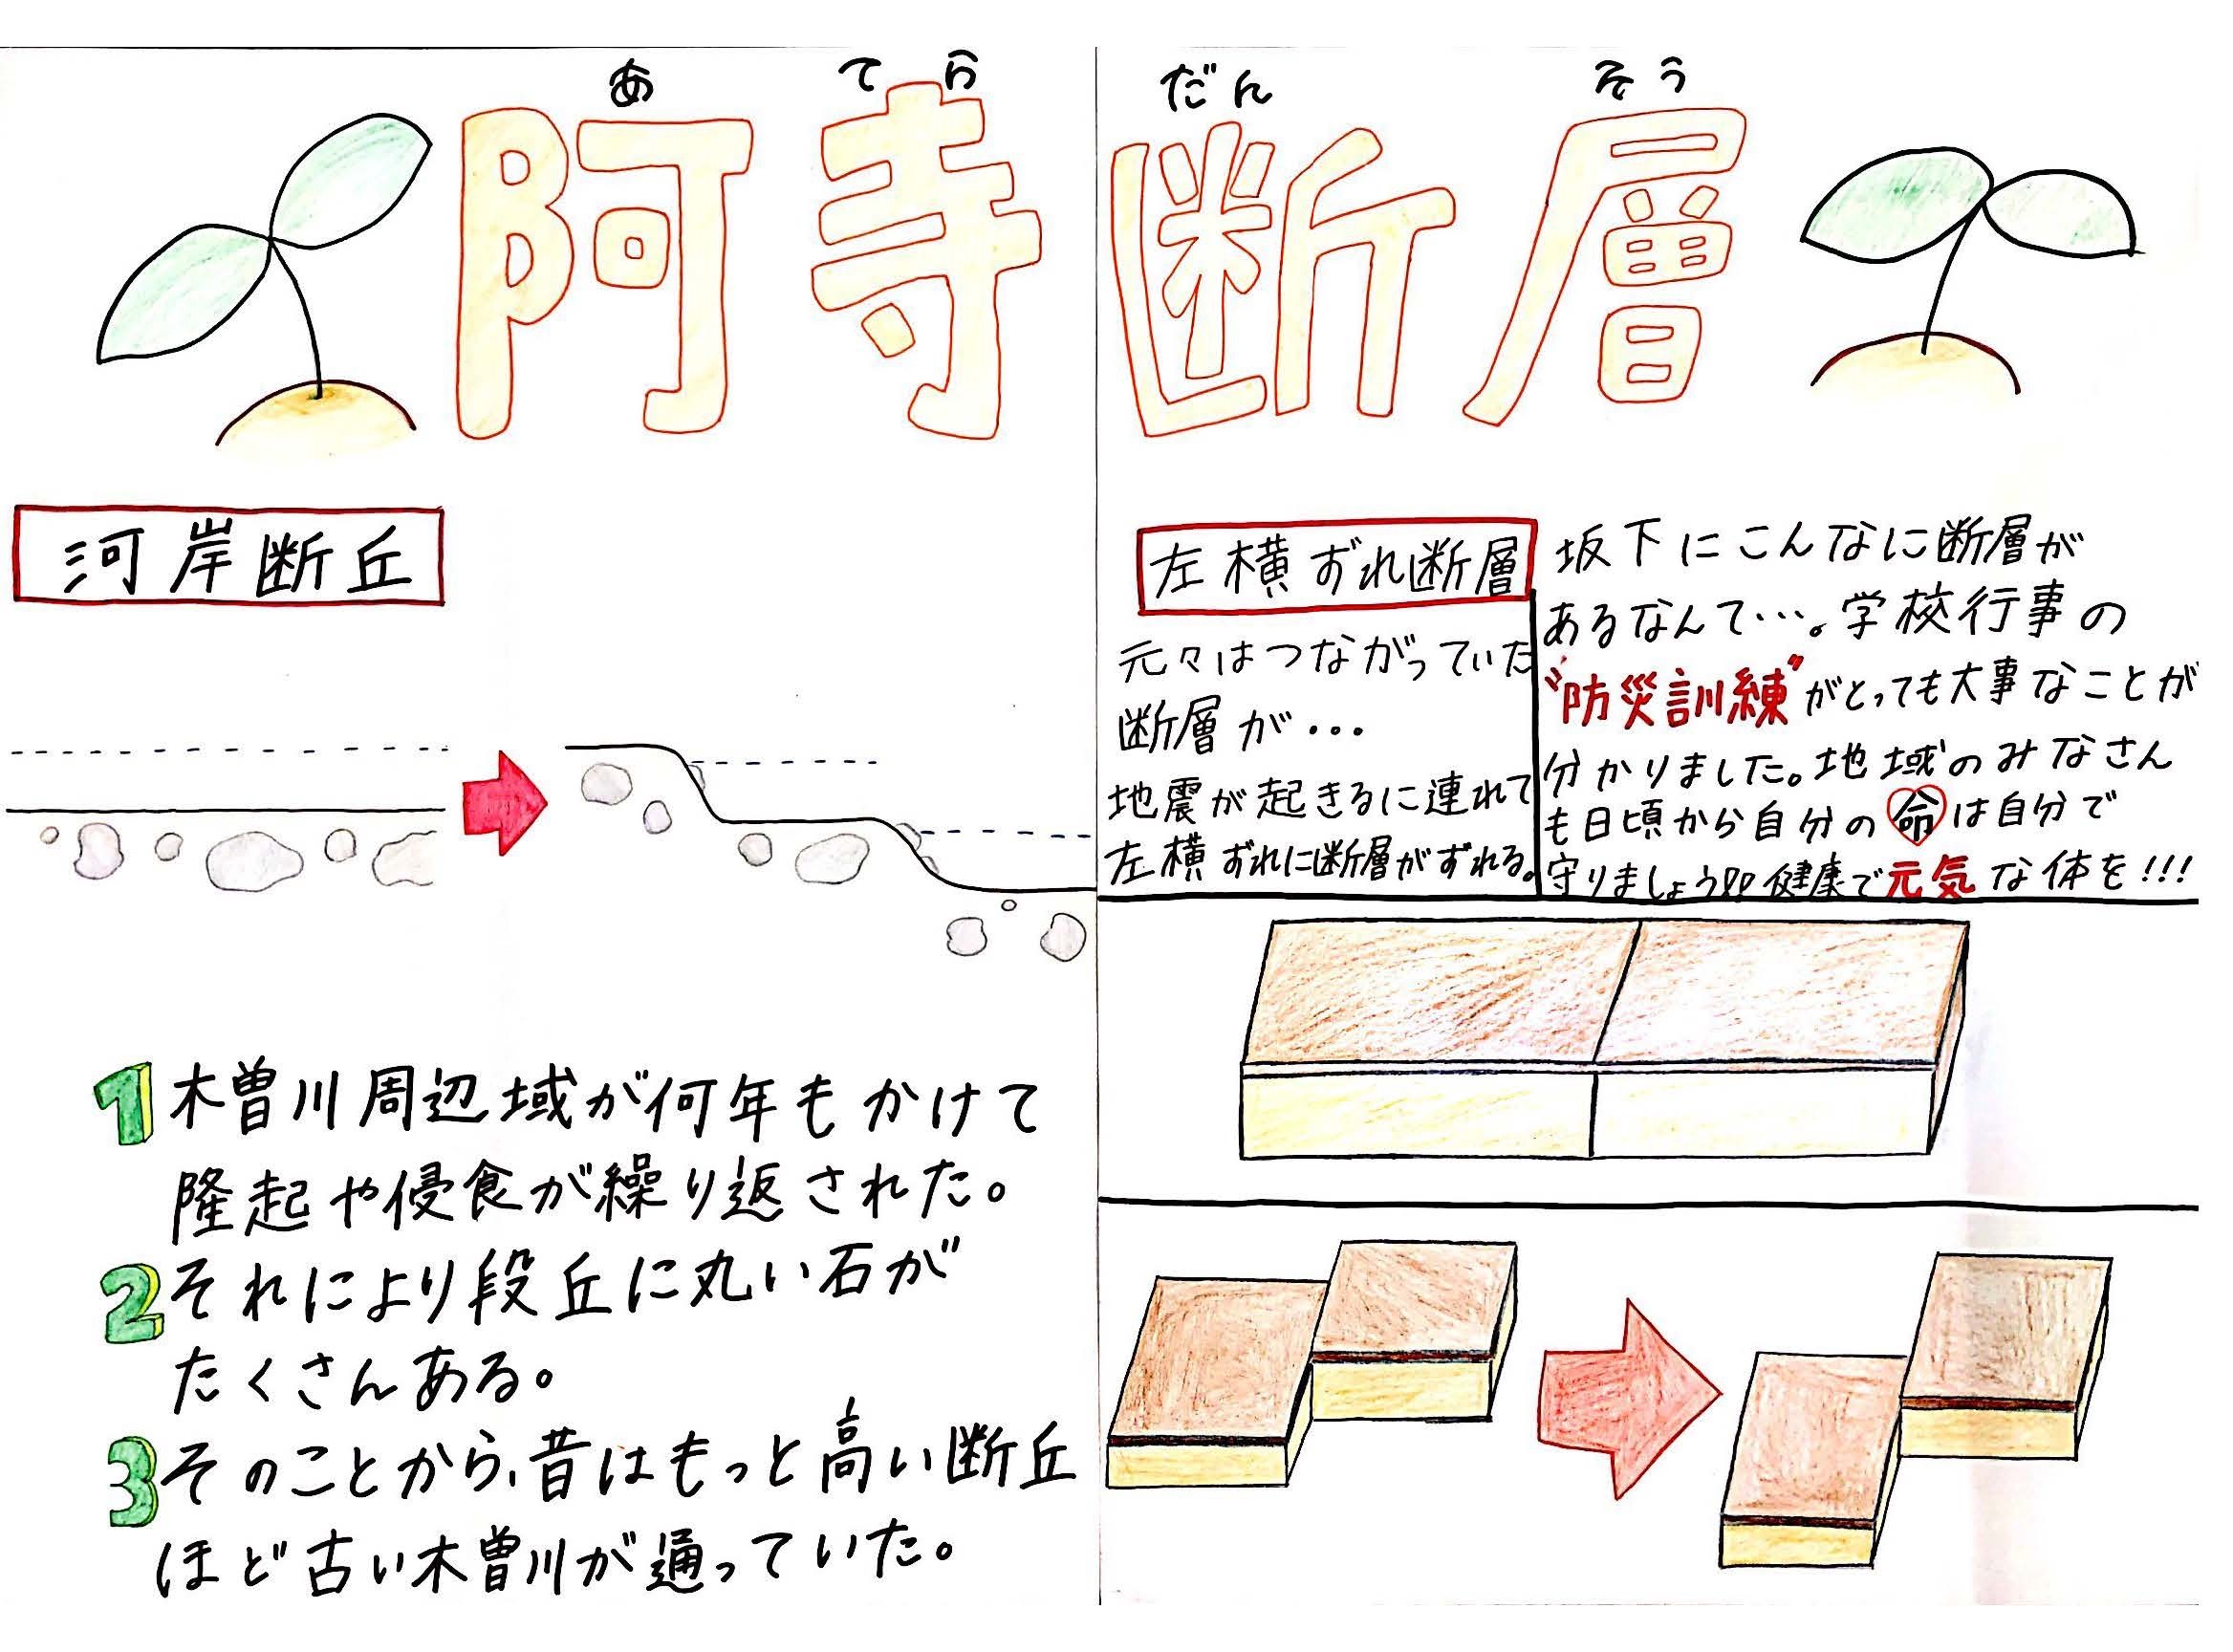 あ て ら だん そう
阿寺断層
河岸断丘
1 木曽川周辺域が何年もかけて
隆起や侵食が繰り返された。
2 それにより段丘に丸い石が
たくさんある。
3 そのことから、昔はもっと高い断丘
ほど古い木曽川が通っていた。
左横ずれ断層
元々はつながっていた
断層が・・・
地震が起きるに連れて
左横ずれに断層がずれる。
坂下にこんなに断層が
あるなんて…。学校行事の
〝防災訓練〞がとっても大事なことが
分かりました。地域のみなさん
も日頃から自分の命は自分で
守りましょう!!健康で元気な体を!!!